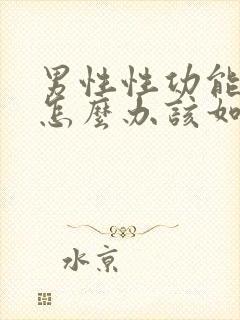 男性性功能
怎麼办該如
水京